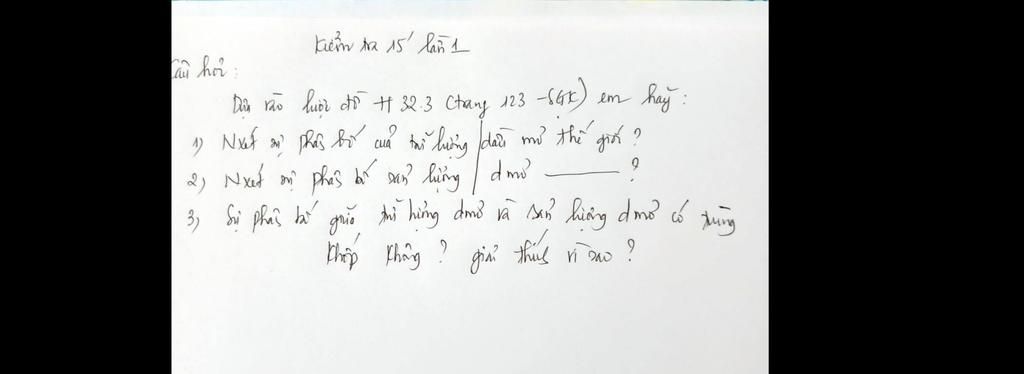 Kiểm tra 15' lần 1
Câu hỏi:
Dựa vào lược đồ H 32.3 (trang 123 - SGK) em hãy:
1) Nxét sự phân bố của trữ lượng dầu mỏ thế giới?
2) Nxét sự phân bố sản lượng dmỏ ———?
3) Sự phân bố giữa trữ lượng dmỏ và sản lượng dmỏ có trùng
khớp không? giải thích vì sao?